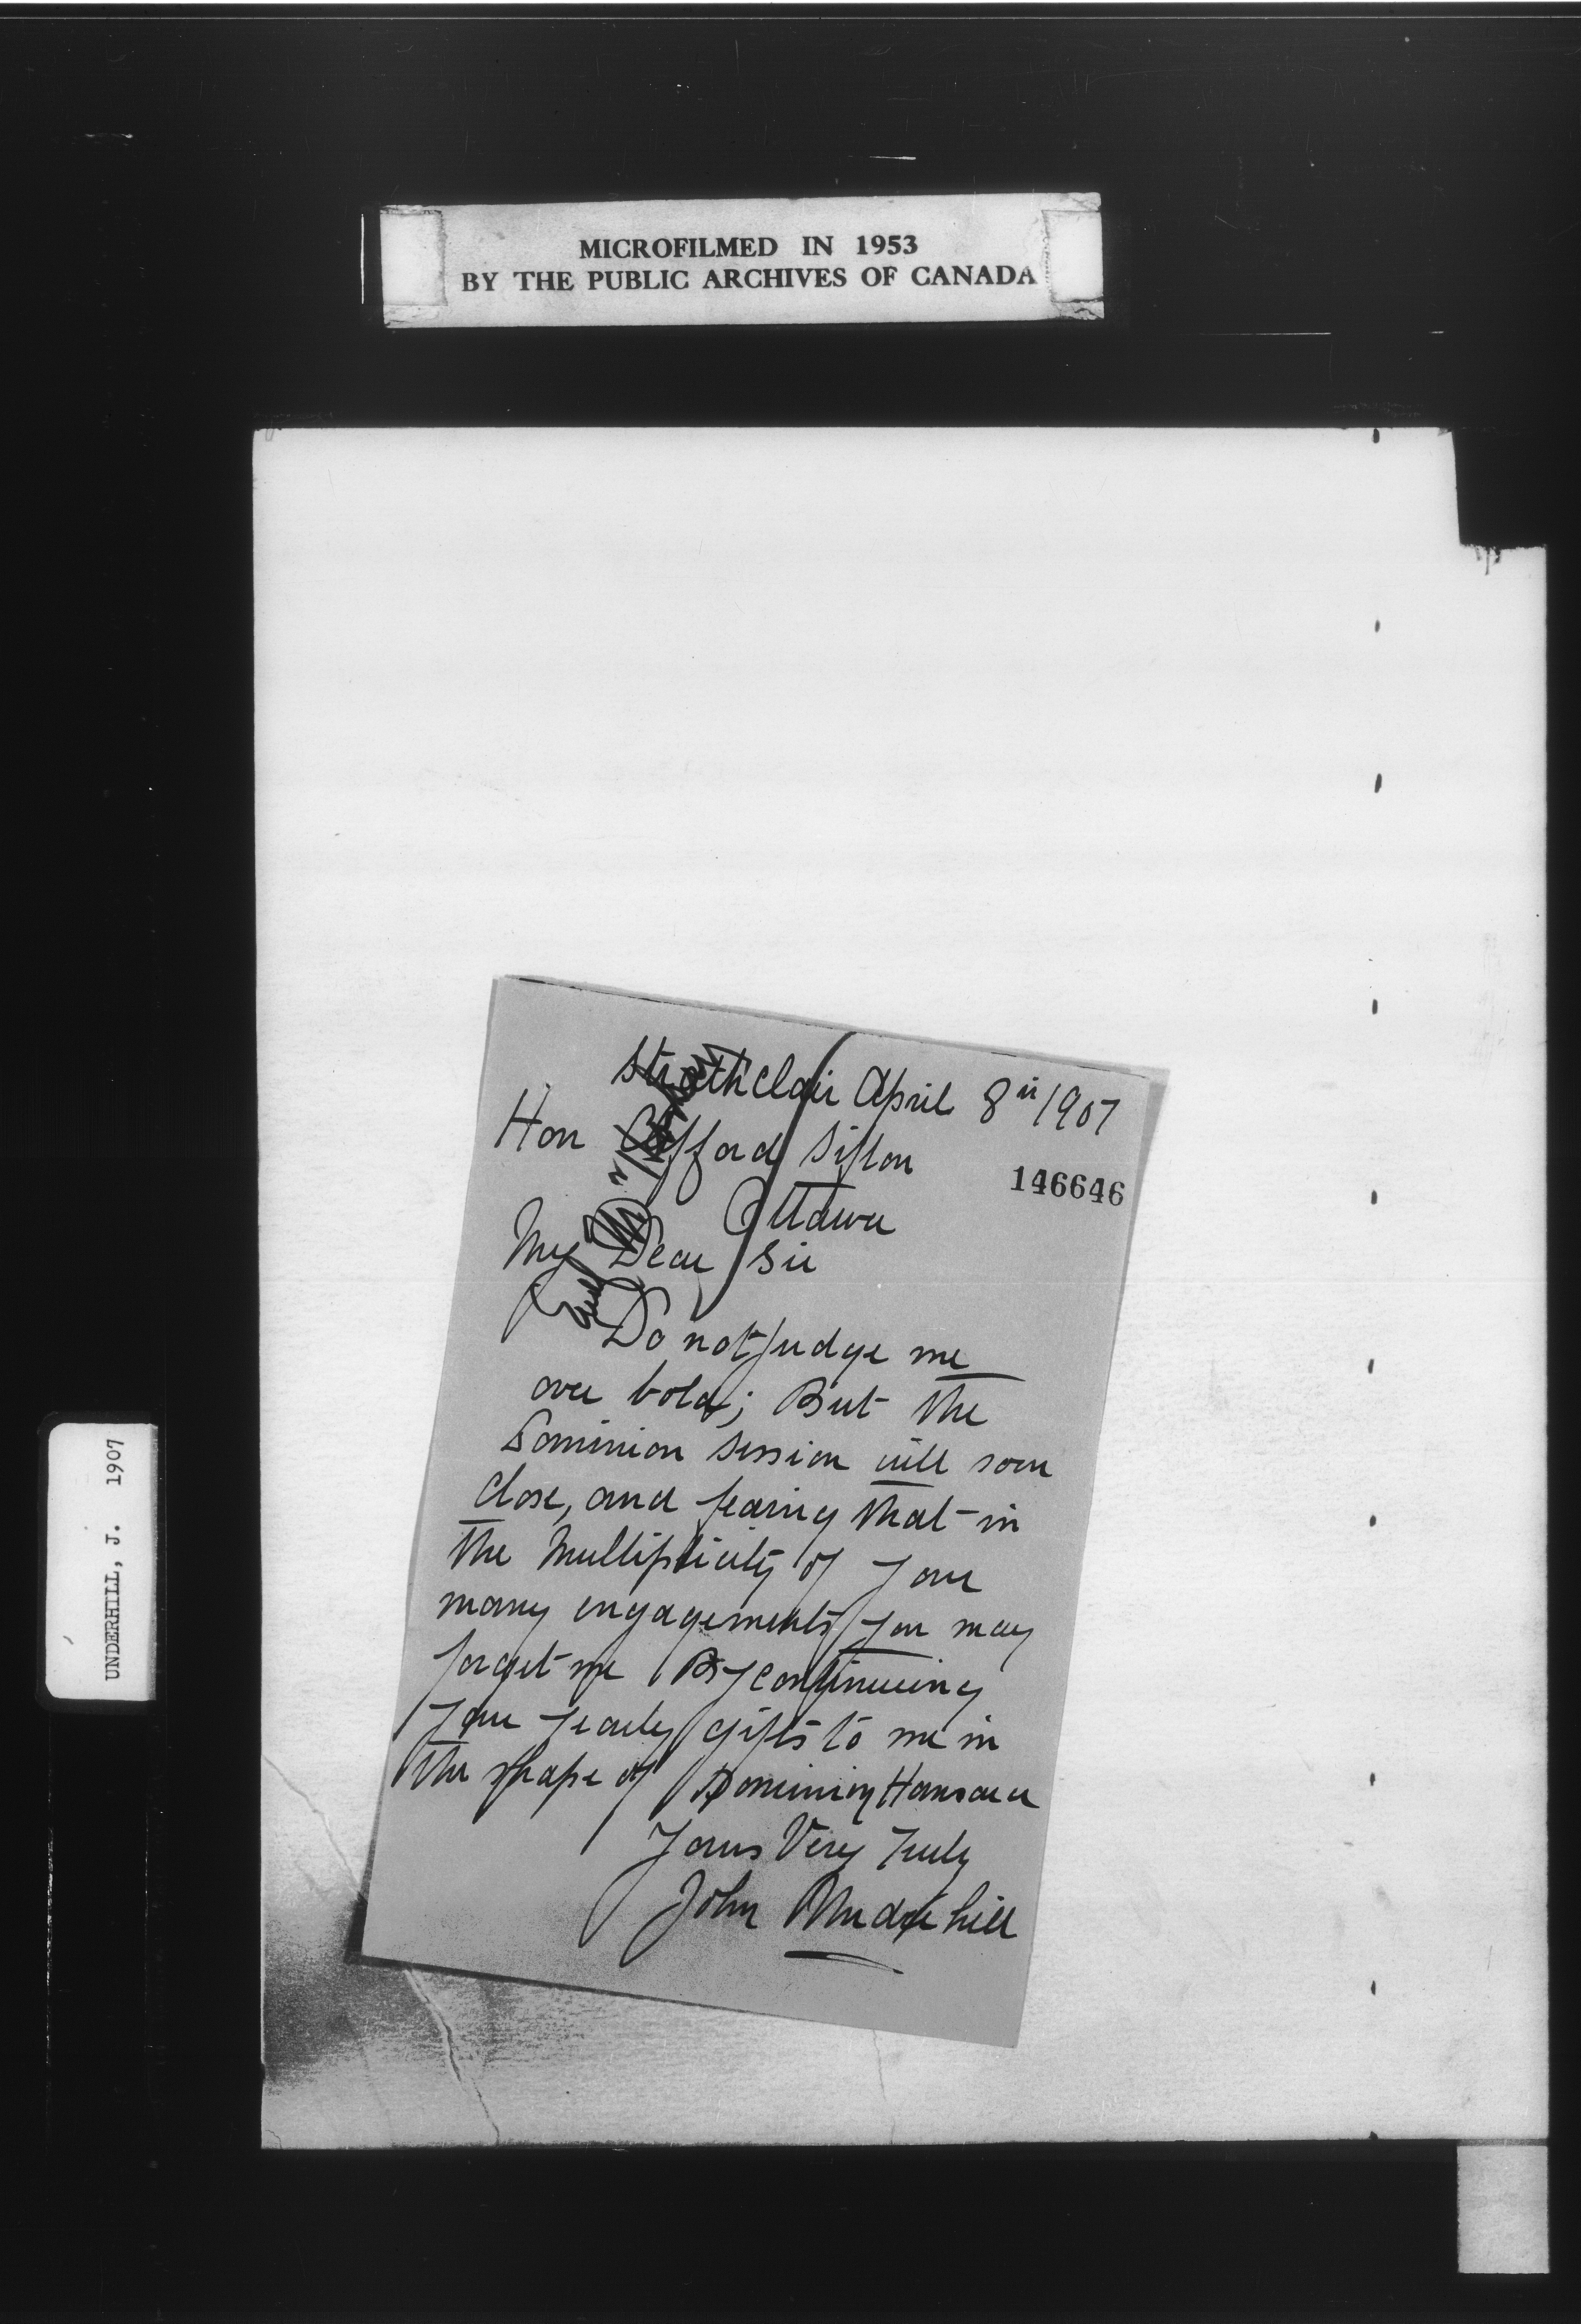 MICROFILMED IN 1953
BY THE PUBLIC ARCHIVES OF CANADA
UNDERHILL, J. 1907
Strathclair April 8th 1907
Hon Clifford Sifton
146646
Ottawa
My Dear Sir
Do not judge me
over bold; But the
Dominion Session will soon
close, and fearing that in
the Multiplicity of your
many engagements you may
forget me By continueing
your yearly gifts to me in
the shape of Dominion Hansard
Yours Very Truly
John Underhill